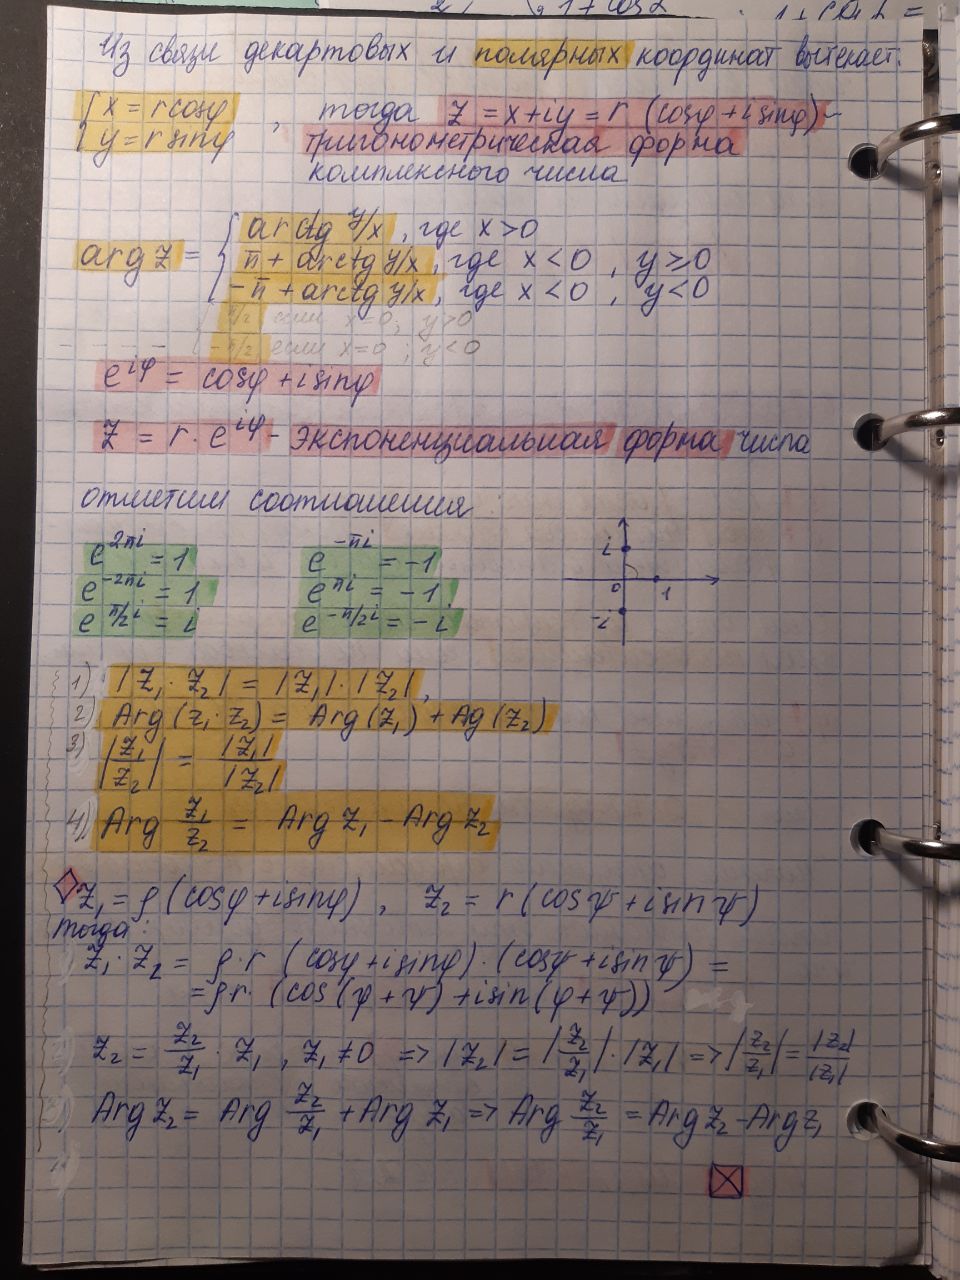 Из связи декартовых и полярных координат вытекает:
{ x = r cosφ
y = r sinφ , тогда z = x+iy = r (cosφ + i sinφ) –
тригонометрическая форма
комплексного числа
arg z = { arctg y/x , где x>0
π + arctg y/x , где x<0 , y≥0
-π + arctg y/x , где x<0 , y<0
π/2 если x=0; y>0
-π/2 если x=0 ; y<0
e^{iφ} = cosφ + i sinφ
z = r · e^{iφ} - экспоненциальная форма числа
отметим соотношения
e^{2πi} = 1 e^{-πi} = -1
e^{-2πi} = 1 e^{πi} = -1
e^{π/2 i} = i e^{-π/2 i} = -i
i
0 1
-i
1) |z₁ · z₂| = |z₁| · |z₂|,
2) Arg (z₁ · z₂) = Arg (z₁) + Ag (z₂)
3) |z₁/z₂| = |z₁|/|z₂|
4) Arg z₁/z₂ = Arg z₁ - Arg z₂
z₁ = ρ (cosφ + i sinφ) , z₂ = r (cos ψ + i sin ψ)
тогда:
z₁ · z₂ = ρ · r (cosφ + i sinφ) · (cosψ + i sin ψ) =
= ρr · (cos (φ + ψ) + i sin (φ + ψ))
z₂ = z₂/z₁ · z₁ , z₁ ≠ 0 => |z₂| = |z₂/z₁| · |z₁| => |z₂/z₁| = |z₂|/|z₁|
Arg z₂ = Arg z₂/z₁ + Arg z₁ => Arg z₂/z₁ = Arg z₂ - Arg z₁